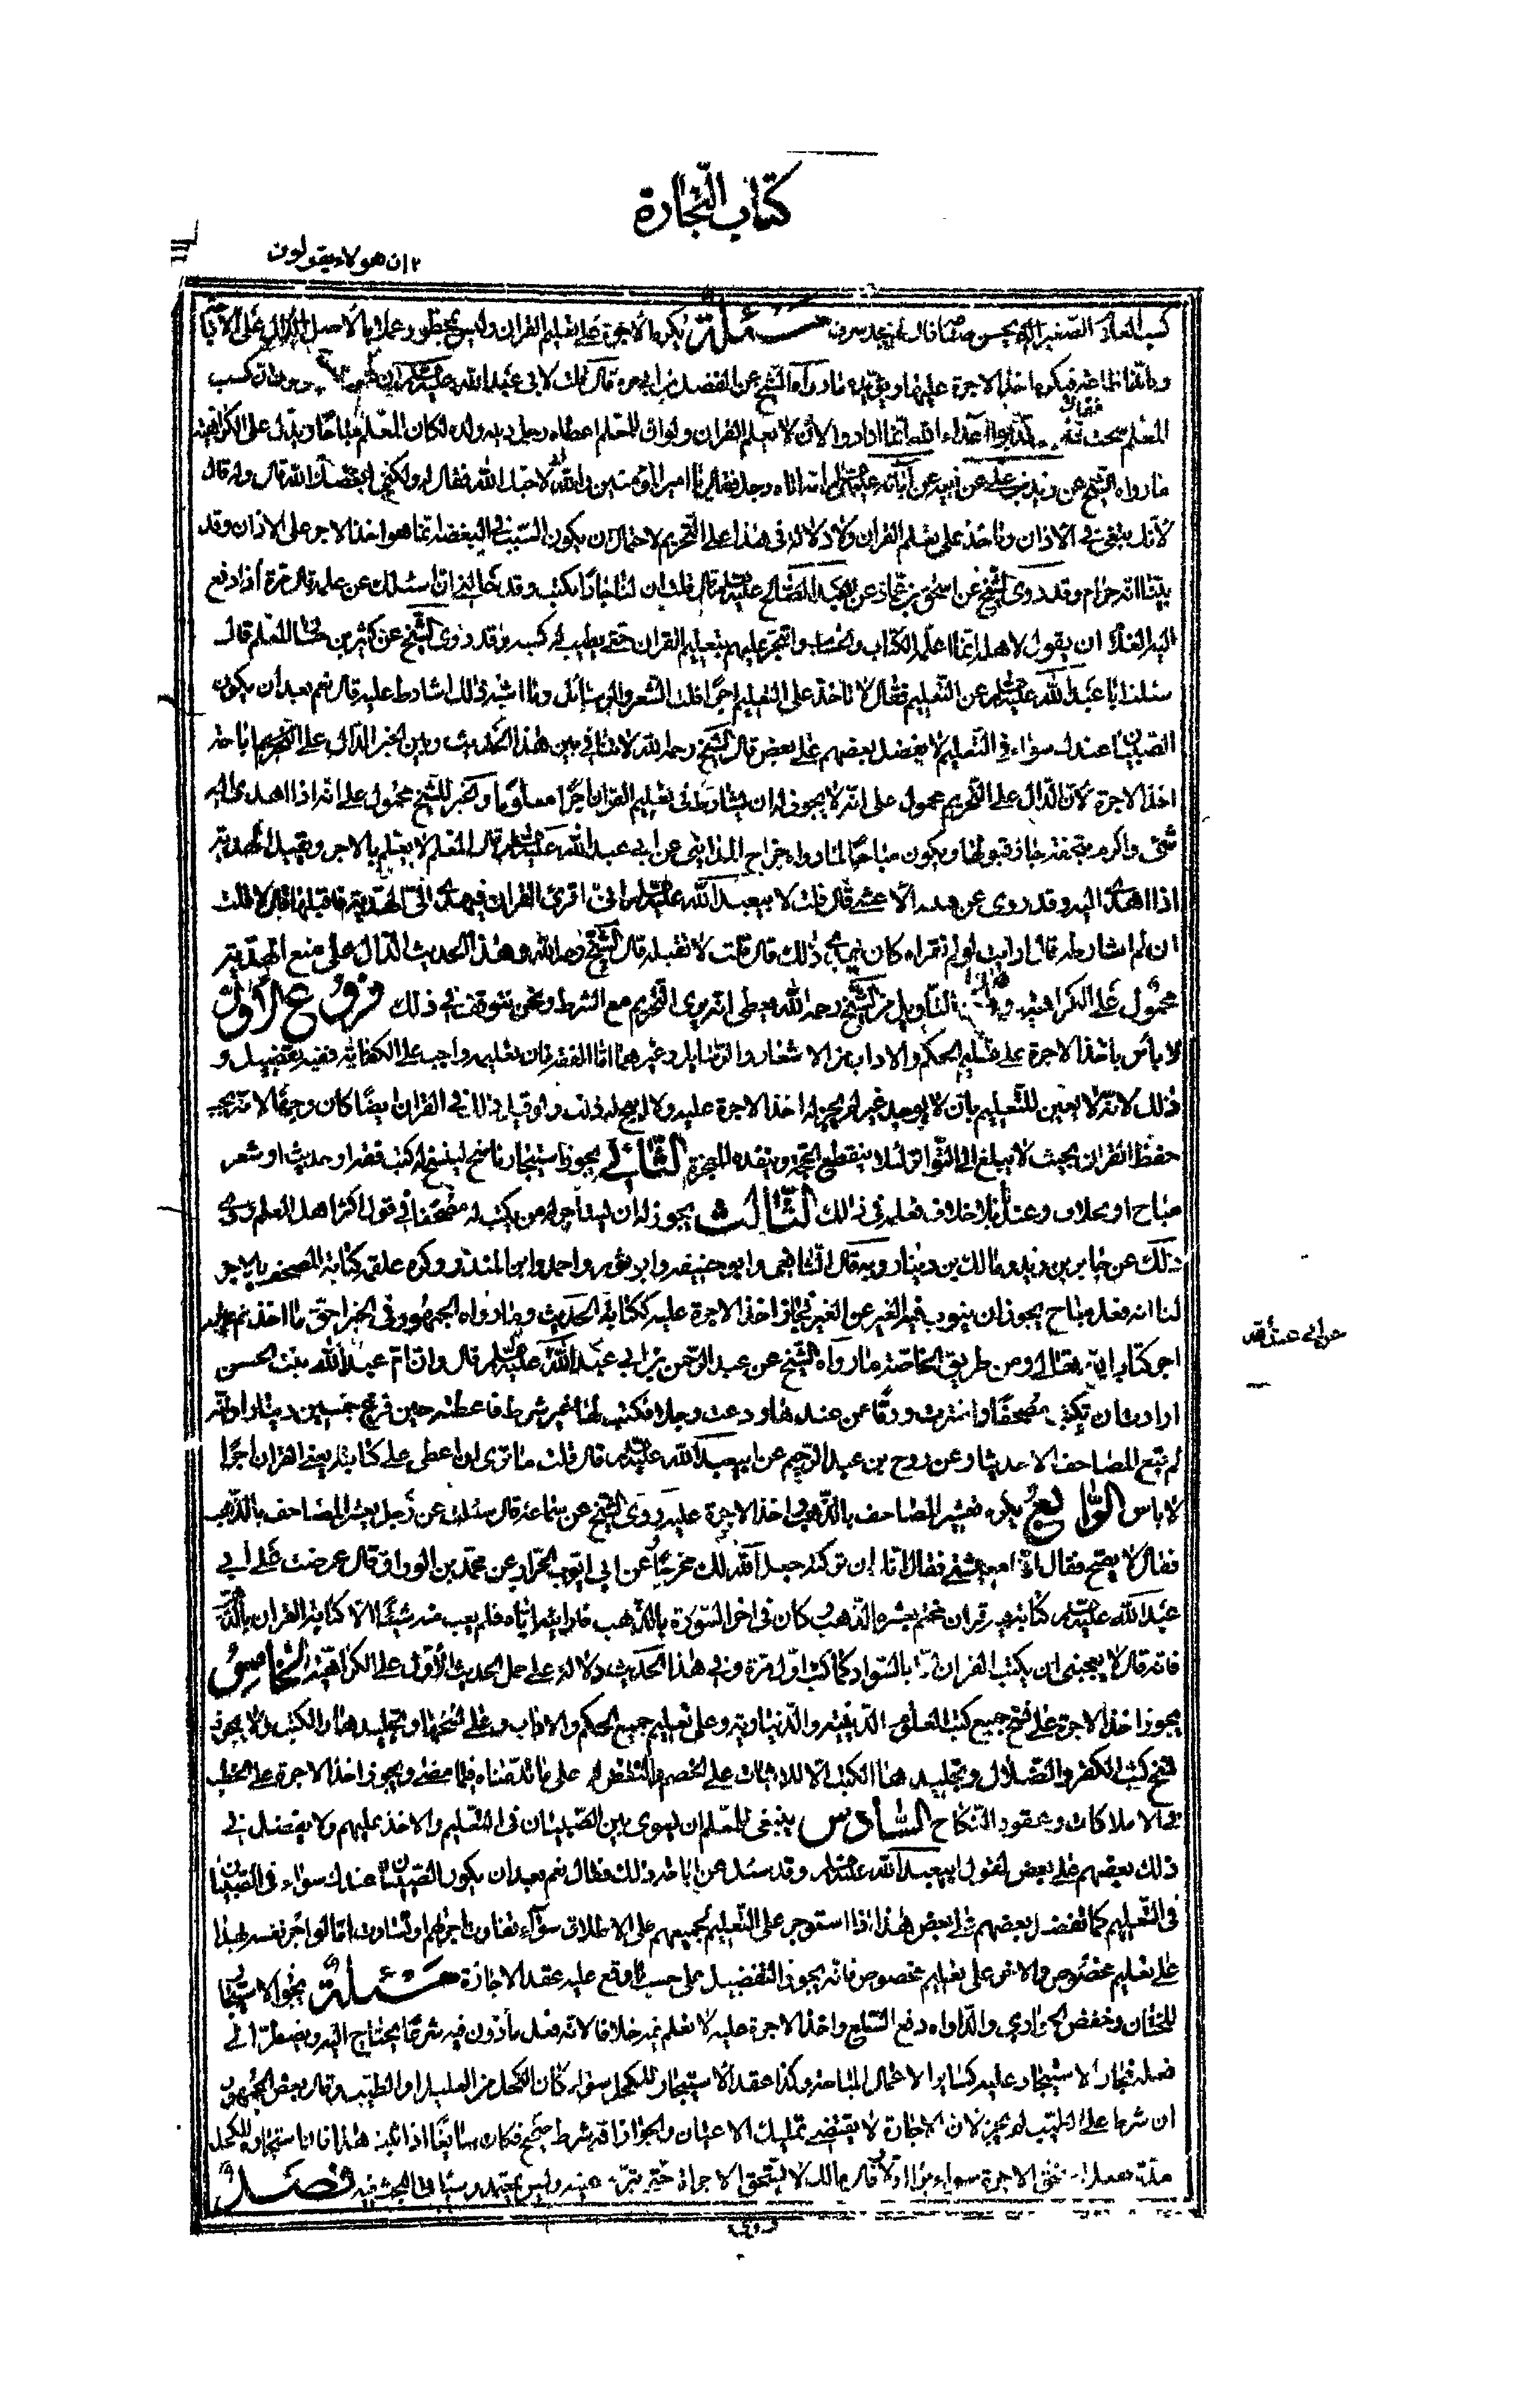 كتاب التجارة
ان هولاء يقولون
كسب الغلام الصغير الذي لا يحسن صناعة فانه ان لم يجد سرق مسئلة يكره الاجرة على تعليم القران وليس بمحظور عملا بالاصل الدال على الاباحة
وبانها طاعة فيكره اخذ الاجرة عليها ويؤيده ما رواه الشيخ عن الفضل بن ابي قرة قال قلت لابي عبد الله عليه السلام ان كسب
المعلم سحت فقال كذبوا اعداء الله انما ارادوا الا يعلموا القران ولو ان المعلم اعطاه رجل دية ولده لكان للمعلم مباحا ويدل على الكراهية
ما رواه الشيخ عن زيد بن علي عن ابيه عن آبائه عليهم السلام انه اتاه رجل فقال يا امير المؤمنين والله اني لاحبك لله فقال له ولكني ابغضك لله قال ولم قال
لانك تبتغي في الاذان وتاخذ على تعليم القران ولا دلالة في هذا على التحريم لاحتمال ان يكون السبب في البغضة انما هو اخذ الاجر على الاذان وقد
بينا انه حرام وقد روى الشيخ عن اسحق بن عمار عن العبد الصالح عليه السلام قال قلت ان لنا جارا يكتب وقد سالني ان اسئلك عن عمله قال مره اذا دفع
اليه الغلام ان يقول لاهله انما اعلمه الكتاب والحساب واتجر عليهم بتعليم القران حتى يطيب له كسبه وقد روى الشيخ عن حسان المعلم قال
سئلت ابا عبد الله عليه السلام عن التعليم فقال لا تاخذ على التعليم اجرا قلت الشعر والرسائل وما اشبه ذلك اشارط عليه قال نعم بعد ان يكون
الصبيان عندك سواء في التعليم لا تفضل بعضهم على بعض قال الشيخ رحمه الله لا تنافي بين هذا الحديث وبين الخبر الدال على التحريم
اخذ الاجرة لان الدال على التحريم محمول على انه لا يجوز له ان يشارط في تعليم القران اجرا معلوما والخبر للشيخ محمول على انه اذا اهدى اليه
شئ واكرم بتحفة جاز قبولها ويكون مباحا لما رواه جراح المدايني عن ابي عبد الله عليه السلام قال المعلم لا يعلم بالاجر ويقبل الهدية
اذا اهدى اليه وقد روى عن قتيبة الاعشى قال قلت لابيعبد الله عليه السلام اني اقرئ القران فيهدى الي الهدية فاقبلها قال لا قلت
ان لم اشارطه قال ارايت لو لم تقرأه كان يهدي لك ذلك قال قلت لا تقبله قال الشيخ رحمه الله وهذا الحديث الدال على منع الهدية
محمول على الكراهية التاويل من الشيخ رحمه الله يعطي انه يرى التحريم مع الشرط ونحن نتوقف في ذلك فروع الاول
لا باس باخذ الاجرة على تعليم الحكم والاداب من الاشعار والرسايل وغيرهما اما الفقه فان تعليمه واجب على الكفاية ففيه تفصيل و
ذلك لانه لا يتعين للتعليم بان لا يوجد غيره لم يجز له اخذ الاجرة عليه ولا يجوز له ذلك ولو قيل ذلك في القران ايضا كان وجها لانه يجب
حفظ القران بحيث لا يبلغ الى التواتر لئلا ينقطع الحجة وينفد المعجزة الثاني يجوز استيجار ناسخ لينسخ له كتب فقه او حديث او شعر
مباح او سجلات وعندنا بلا خلاف نعلمه في ذلك الثالث يجوز له ان يستأجر له من يكتب له مصحفا في قول اكثر اهل العلم روى
ذلك عن جابر بن زيد ومالك بن دينار وبه قال الشافعي وابو حنيفة وابو ثور واحمد وابن المنذر وكره علقمة كتابة المصحف بالاجر
لنا انه فعل مباح يجوز ان ينوب فيه الغير عن الغير فجاز اخذ الاجرة عليه ككتابة الحديث وما رواه الجمهور في الخبر احق ما اخذتم عليه
اجر كتاب الله تعالى ومن طريق الخاصة ما رواه الشيخ عن عبد الرحمن بن ابي عبد الله عليه السلام قال وان ام عبد الله بنت الحسن
عن ابي عبد الله
ارادت ان تكتب مصحفا واشترت ورقا من عندها ودعت رجلا فكتب لها على غير شرط فاعطته حين فرغ خمسين دينارا وانه
لم تبع المصاحف الا حديثا وعن روح بن عبد الرحيم عن ابيعبد الله عليه السلام قال قلت ما ترى ان اعطى على كتابته يعني القران اجرا
لا باس الرابع يكره تعشير المصاحف بالذهب واخذ الاجرة عليه روى الشيخ عن سماعة قال سئلت عن رجل يعشر المصاحف بالذهب
فقال لا يصلح فقال انه معيشتي فقال انك ان تركته جعل الله لك مخرجا وعن ابي ايوب الخزاز عن محمد بن الوراق قال عرضت على ابي
عبد الله عليه السلام كتابا فيه قران مختم معشر بالذهب وكان في اخر السورة بالذهب فاريته اياه فلم يعب منه شيئا الا كتابة القران بالذهب
فانه قال لا يعجبني ان يكتب القران الا بالسواد كما كتب اول مرة وفي هذا الحديث دلالة على حمل الحديث الاول على الكراهية الخامس
يجوز اخذ الاجرة على نسخ جميع كتب العلوم الدينية والدنياوية وعلى تعليم جميع الحكم والاداب وعلى نسخها وتجليدها والكتب ولا يجوز
نسخ كتب الكفر والضلال وتجليد هذا الكتب الا للاثبات على الخصم والنقض له على ما قدمناه فيما مضى ويجوز اخذ الاجرة على الخطب
في الاملاكات وعقود النكاح السادس ينبغي للمعلم ان يسوى بين الصبيان في التعليم والاخذ عليهم ولا يفضل في
ذلك بعضهم على بعض لقول ابيعبد الله عليه السلام وقد سئل عن ذلك فقال نعم بعد ان يكون الصبيان عندك سواء
في التعليم كما تفضل بعضهم على بعض هذا اذا استوجر على التعليم لجميعهم على الاطلاق سواء تفاوتت اجراهم او تساوت اما لو اجر نفسه لهذا
على تعليم مخصوص والاخر على تعليم مخصوص فانه يجوز التفضيل على حسب ما وقع عليه عقد الاجارة مسئلة يجوز الاستيجار
للختان وخفض الجواري والمداواة وقطع السلع واخذ الاجرة عليه لا نعلم فيه خلافا لانه فعل مأذون فيه شرعا يحتاج اليه ويضطر الى
فعله فجاز الاستيجار عليه كسائر الاعمال المباحة وكذا عقد الاستيجار للكحل سواء كان الكحل من العليل او الطبيب وقال بعض الجمهور
ان شرطه على الطبيب لم يجز لان الاجارة لا يقتضي تمليك الاعيان والجواز انه شرط صحيح فكان سائغا اذا ثبت هذا فاذا استاجره للكحل
مدة سواء برأ او لا قال مالك لا يستحق الاجرة حتى تبرء عينه وليس بمعتمد وسيأتي البحث فيه فصل